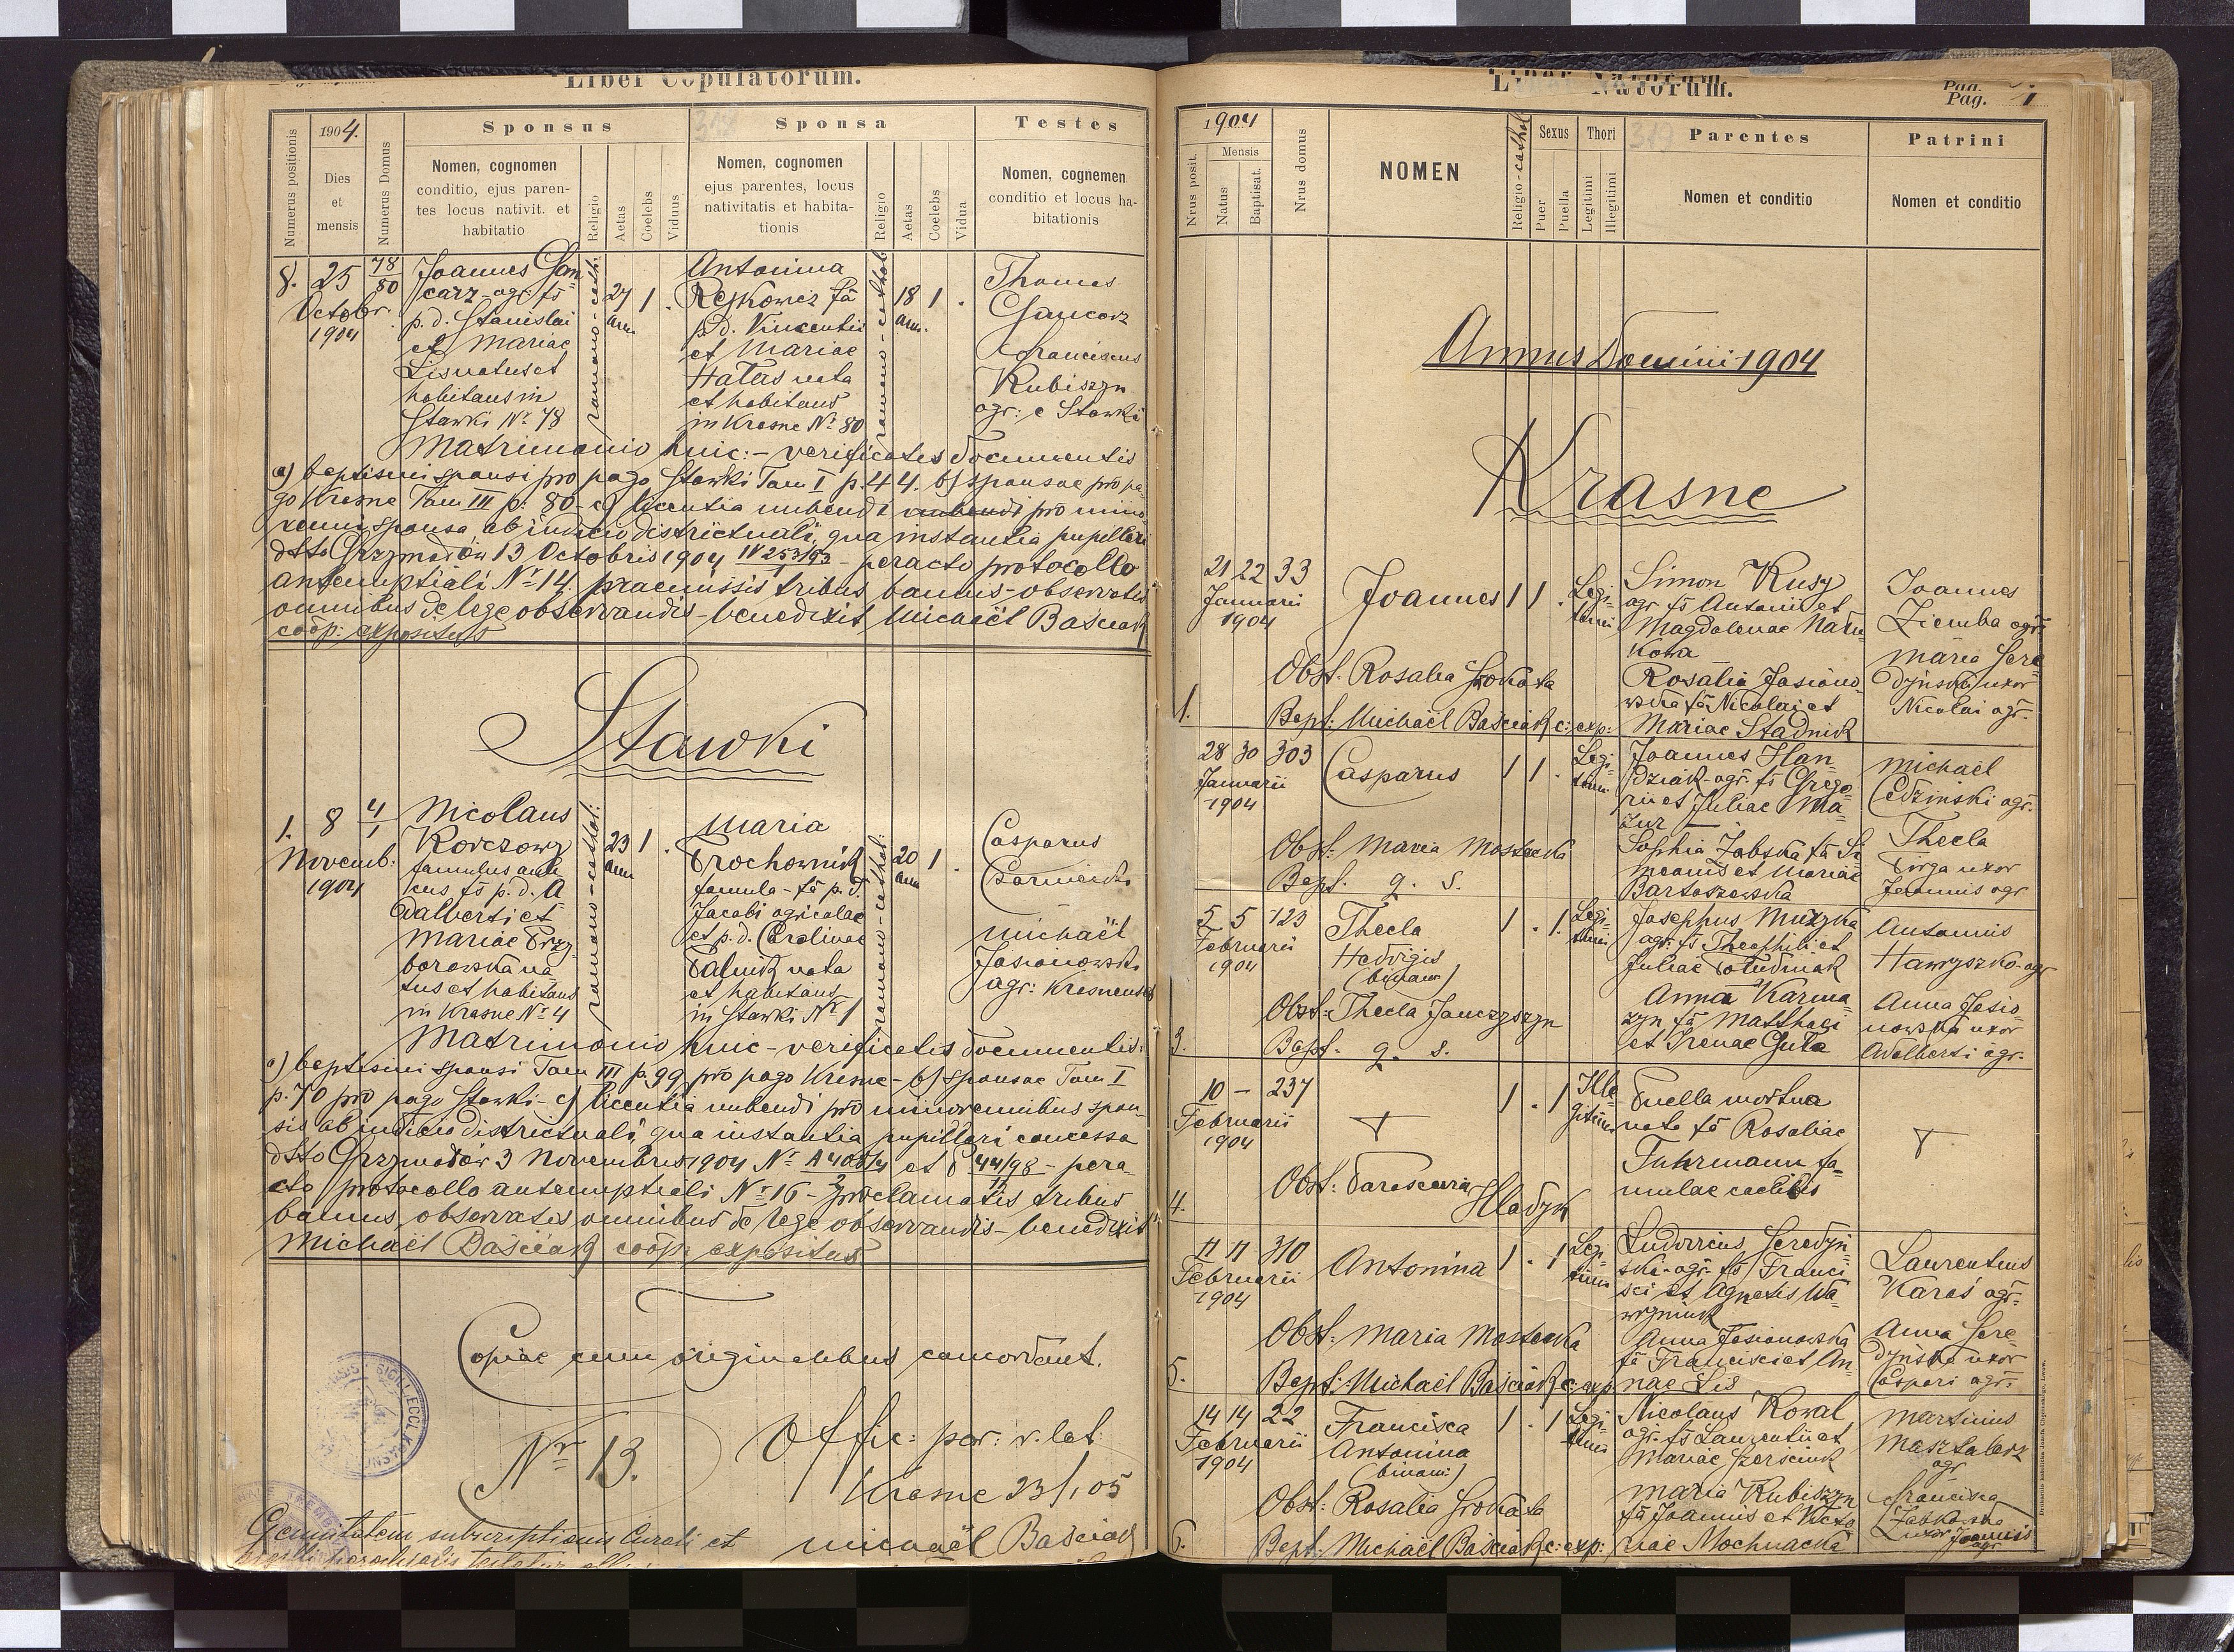 Liber Copulatorum.
Numerus positionis
1904.
Dies et mensis
Numerus Domus
Sponsus
Nomen, cognomen
conditio, ejus paren-
tes locus nativit. et
habitatio
Religio
Aetas
Coelebs
Viduus
Sponsa
Nomen, cognomen
ejus parentes, locus
nativitatis et habita-
tionis
Religio
Aetas
Coelebs
Vidua
Testes
Nomen, cognemen
conditio et locus ha-
bitationis
8. 25
Octobr.
1904
78
80
Joannes Gan
carz agr: fs
p. d. Stanislai
et Mariae
Lis natus et
habitans in
Stawki Nr 78
romano-cath:
27 ann. 1 .
Antonina
Rejkowicz fa
p. d. Vincentii
et Mariae
Hałas nata
et habitans
in Krasne Nr 80
romano-cathol
18 ann. 1 .
Thomas
Gancarz
Franciscus
Kubiszyn
agr: e Stawki
Matrimonio huic:- verificatis documentis
a) baptismi sponsi pro pago Stawki Tom I p. 44. b) sponsae pro pa-
go Krasne Tom III p: 80 - c) licentia nubendi nubendi pro mino
renni sponsa, ab iudicio districtuali, qua instantia pupillari
dtto Grzymałów 13 Octobris 1904 - peracto protocollo
antenuptiali Nr 14. praemissis tribus bannis - observatis
omnibus de lege observandis - benedixit Michaël Baściak
coöp: expositus
Stawki
1. 8
Novemb:
1904
4
1
Nicolaus
Korczowy
famulus
fs p. d. A
dalberti et
Mariae Przy
borowska na
tus et habitans
in Krasne Nr 4
romano-cathol:
23 ann 1 .
Maria
Prochownik
famula - fa p. d.
Jacobi agricolae
et p. d. Carolinae
Palnik nata
et habitans
in Stawki Nr 1
romano-cathol:
20 ann 1 .
Casparus
Czarniecki
Michaël
Jasionowski
agr: Krasnensis
Matrimonio huic - verificatis documentis:
a) baptismi sponsi Tom III p. 99 pro pago Krasne - b) sponsae Tom I
p. 70 pro pago Stawki - c) licentia nubendi pro minorennibus spon-
sis ab iudicio districtuali, qua instantia pupillari concessa
dtto Grzymałów 3 Novembris 1904 Nr et P 44/98 - pera-
cto protocollo antenuptiali Nr 16 - proclamatis tribus
bannis, observatis omnibus de lege observandis - benedixit
Michaël Baściak coöp: expositus
Copiae cum originalibus concordant.
Nr 13.
Offic: par: r. lat.
Krasne 23/1 05
Michaël Baściak
Genuitatem subscriptionis Curati et
sigilli parochialis testatur
Liber Natorum.
Pag. 1
1904
Nrus posit.
Mensis
Natus
Baptisat.
Nrus domus
NOMEN
Religio - cathol
Sexus
Puer
Puella
Thori
Legitimi
Illegitimi
Parentes
Nomen et conditio
Patrini
Nomen et conditio
Annus Domini 1904
Krasne
21 22 33
Januarii
1904
Joannes 1 1 . Legi-
timi
Simon Kusy
agr. fs Antonii et
Magdalenae
kowa
Rosalia Jasiono-
wska fa Nicolai et
Mariae Stadnik
Joannes
Ziemba agr:
Maria Sere
dyńska uxor
Nicolai agr.
Obst. Rosalia
1. Bapt: Michaël Baściak c: exp:
28 30 303
Januarii
1904
Casparus 1 1 . Legi-
timi
Joannes Han
dziak - agr. fs Grego-
rii et Juliae Ma-
zur
Sophia Żabska fa Si
meonis et Mariae
Bartoszewska
Michaël
Cedzinski agr.
Thecla
uxor
Joannis agr
Obst: Maria Mostecka
Bapt. q. s.
5 5 123
Februarii
1904
Thecla
Hedvigis
(binom)
1 . 1. Legi-
timi
Josephus Muzyka
agr. fs Theophili et
Juliae Południak
Anna Karma
zyn fa Matthaei
et Irenae Guła
Antonius
Hawryszko agr
Anna Jasio-
nowska uxor
Adalberti agr.
Obst: Thecla Janczyszyn
3. Bapt. q. s.
10 - 237
Februarii
1904
1 . 1 Ille
gitimi
Puella mortua
nata fa Rosaliae
Fuhrmann fa-
mulae caelibis
Obst: Parascevia Hladyk
4.
11 11 310
Februarii
1904
Antonina 1 . 1 Legi
timi
Ludovicus Seredyń
ski - agr. fs Franci
sci et Agnetis Wa-
wryniuk
Anna Jasionowska
fa Francisci et An-
nae Lis
Laurentius
Karaś agr:
Anna Sere-
dyńska uxor
Caspari agr:
Obst: Maria Mostecka
5. Bapt: Michaël Baściak c: exp
14 14 22
Februarii
1904
Francisca
Antonina
(binom:)
1 . 1 Legi-
timi
Nicolaus Kowal
agr. fs Laurentii et
Mariae
Maria Kubiszyn
fa Joannis et Victo
riae Mochnacka
Martinus
Masztalerz
agr
Francisca
Żabkowska
uxor Joannis
agr
Obst: Rosalia
6. Bapt: Michaël Baściak c: exp: